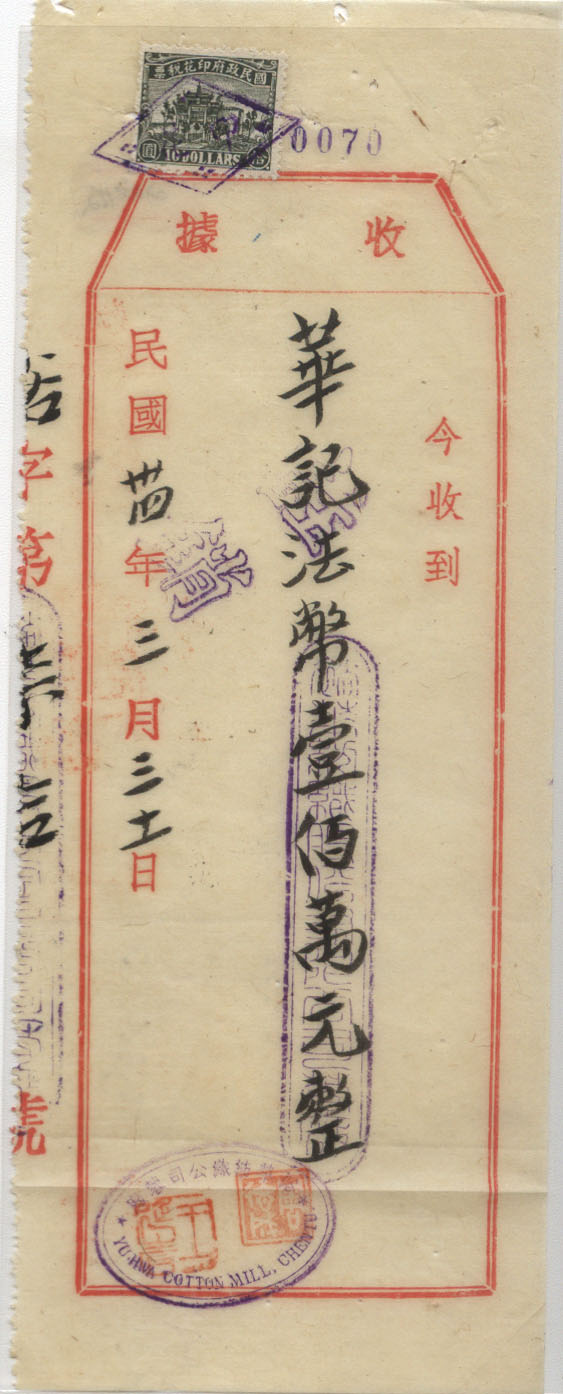 國民政府印花稅票
10 DOLLARS
0070
收據
今收到
華記法幣壹佰萬元整
民國卅四年三月三十一日
字第
號
紡織公司
YU-HWA COTTON MILL, CHENTU